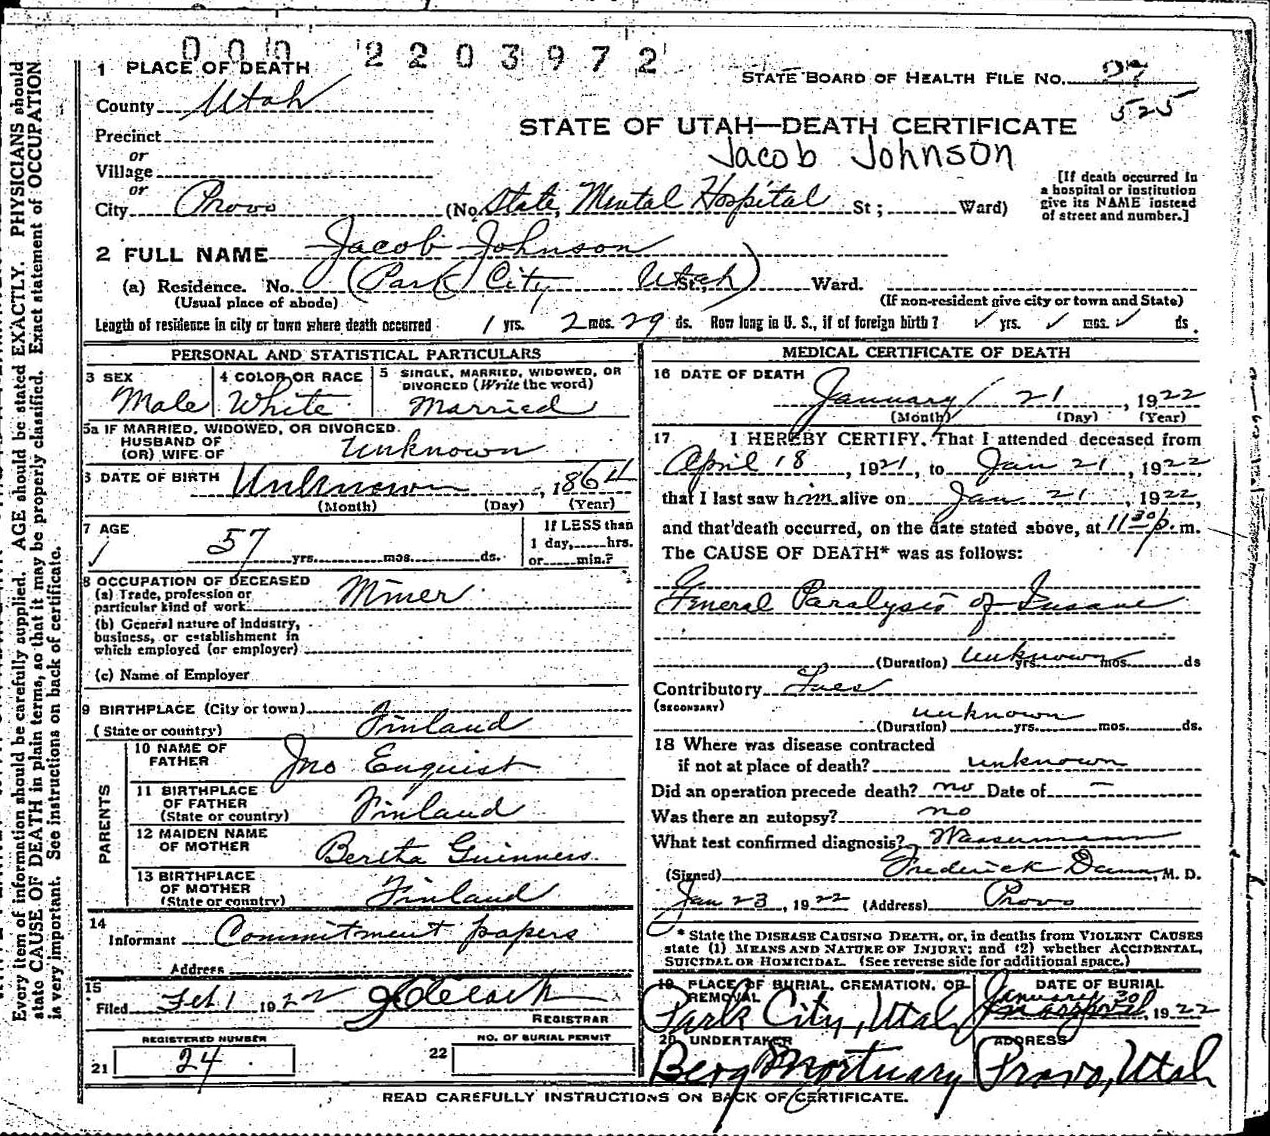 000 2203972
1 PLACE OF DEATH
STATE BOARD OF HEALTH FILE NO. 27
525
County Utah
STATE OF UTAH—DEATH CERTIFICATE
Jacob Johnson
Precinct
or
Village
or
City Provo (No. State Mental Hospital St; Ward)
[If death occurred in
a hospital or institution
give its NAME instead
of street and number.]
2 FULL NAME Jacob Johnson
(a) Residence. No. (Park City, Utah) St; Ward.
(Usual place of abode) (If non-resident give city or town and State)
Length of residence in city or town where death occurred 1 yrs. 2 mos. 29 ds. How long in U. S., if of foreign birth? ✓ yrs. ✓ mos. ✓ ds.
PERSONAL AND STATISTICAL PARTICULARS
3 SEX Male
4 COLOR OR RACE White
5 SINGLE, MARRIED, WIDOWED, OR
DIVORCED (Write the word)
Married
5a IF MARRIED, WIDOWED, OR DIVORCED.
HUSBAND OF
(OR) WIFE OF Unknown
6 DATE OF BIRTH Unknown, 1864
(Month) (Day) (Year)
7 AGE
57 yrs. mos. ds.
If LESS than
1 day, hrs.
or min.?
8 OCCUPATION OF DECEASED
(a) Trade, profession or
particular kind of work Miner
(b) General nature of industry,
business, or establishment in
which employed (or employer)
(c) Name of Employer
9 BIRTHPLACE (City or town)
(State or country) Finland
PARENTS
10 NAME OF
FATHER Jno Enquist
11 BIRTHPLACE
OF FATHER
(State or country) Finland
12 MAIDEN NAME
OF MOTHER Bertha Guinness
13 BIRTHPLACE
OF MOTHER
(State or country) Finland
14
Informant Commitment papers
Address
15
Filed Feb 1 1922
REGISTRAR
REGISTERED NUMBER
21 24
NO. OF BURIAL PERMIT
22
MEDICAL CERTIFICATE OF DEATH
16 DATE OF DEATH
January 21, 1922
(Month) (Day) (Year)
17 I HEREBY CERTIFY, That I attended deceased from
April 18, 1921, to Jan 21, 1922,
that I last saw him alive on Jan 21, 1922,
and that death occurred, on the date stated above, at 11 30 p. m.
The CAUSE OF DEATH* was as follows:
General Paralysis of Insane
(Duration) unknown yrs. mos. ds
Contributory Lues
(SECONDARY)
(Duration) unknown yrs. mos. ds.
18 Where was disease contracted
if not at place of death? unknown
Did an operation precede death? no Date of —
Was there an autopsy? no
What test confirmed diagnosis? Wassermann
(Signed) Frederick Dunn, M. D.
Jan 23, 1922 (Address) Provo
* State the DISEASE CAUSING DEATH, or, in deaths from VIOLENT CAUSES
state (1) MEANS AND NATURE OF INJURY; and (2) whether ACCIDENTAL,
SUICIDAL OR HOMICIDAL. (See reverse side for additional space.)
19 PLACE OF BURIAL, CREMATION, OR
REMOVAL
Park City, Utah
DATE OF BURIAL
January 30, 1922
20 UNDERTAKER
Berg Mortuary
ADDRESS
Provo, Utah
READ CAREFULLY INSTRUCTIONS ON BACK OF CERTIFICATE.
Every item of information should be carefully supplied. AGE should be stated EXACTLY. PHYSICIANS should
state CAUSE OF DEATH in plain terms, so that it may be properly classified. Exact statement of OCCUPATION
is very important. See instructions on back of certificate.